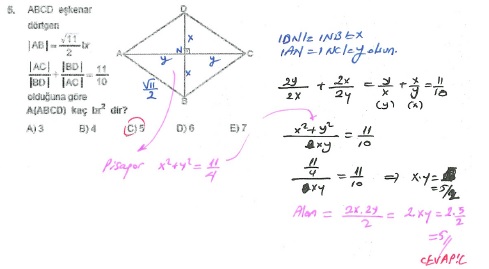 6. ABCD eşkenar
dörtgen
|AB| = √11/2 br
|AC|/|BD| + |BD|/|AC| = 11/10
olduğuna göre
A(ABCD) kaç br² dir?
A) 3 B) 4 C) 5 D) 6 E) 7
D
A
N
C
B
x
y
y
x
√11/2
Pisagor x²+y² = 11/4
|DN| = |NB| = x
|AN| = |NC| = y olsun.
2y/2x + 2x/2y = y/x + x/y = 11/10
(y) (x)
x²+y²/xy = 11/10
11/4/xy = 11/10 ⇒ x.y = 5/2
Alan = 2x.2y/2 = 2xy = 2.5/2
= 5
CEVAP C